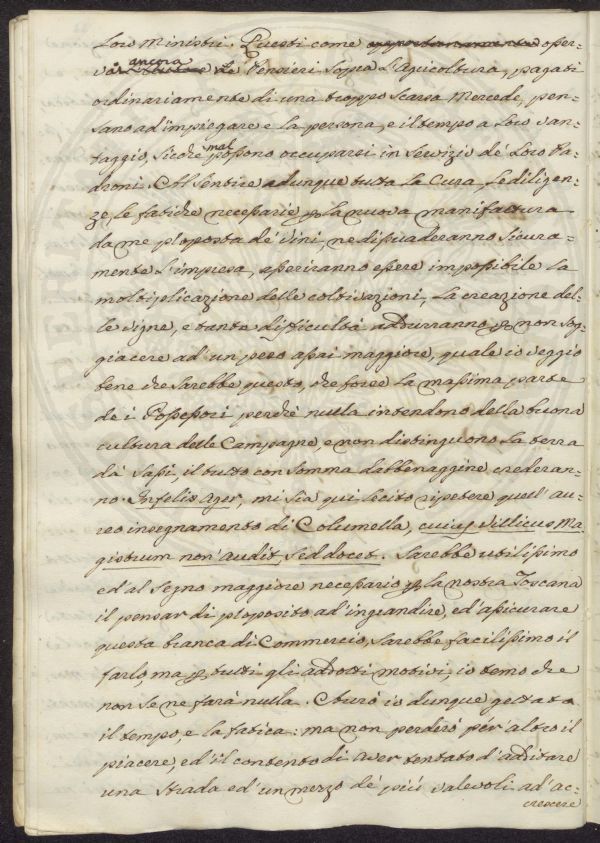 Loro Ministri. Questi come opportunamente osser-
va ancora Le Pensieri Sopra L'Agricoltura, pagati
ordinariamente di una troppo Scarsa Mercede, pen-
sano ad'impiegare e la persona, e il tempo a Loro van-
taggio, sicché mal possono occuparsi in Servizio dé Loro Pa-
droni. All Sentire adunque tutta la Cura, le diligen-
ze, le fatiche necessarie p la nuova manifattura
da me proposta dé vini, ne dissuaderanno Sicura-
mente L'impresa, asseriranno essere impossibile la
moltiplicazione delle coltivazioni, la creazione del-
le vigne, e tante difficultà addurranno p non sog-
giacere ad'un peso assai maggiore, quale io veggio
bene che sarebbe questo, che forse la massima parte
de i Possessori perché nulla intendono della buona
cultura delle Campagne, e non distinguono la terra
dà Sassi, il tutto con Somma dabbenaggine crederan-
no. Infelix Ager, mi sia qui lecito ripetere quell'au-
reo insegnamento di Columella, cuius Villicus Ma-
gistrum non'audit, sed docet. Sarebbe utilissimo
ed'al Segno maggiore necessario p la nostra Toscana
il pensar di proposito ad'ingrandire, ed'assicurare
questa branca di Commercio, sarebbe facilissimo il
farlo, ma p tutti gli addotti motivi, io temo che
non se ne farà nulla. Avrò io dunque gettato
il tempo, e la fatica: ma non perderò pér'altro il
piacere, ed'il contento di aver tentato d'additare
una Strada ed'un mezzo dé più valevoli ad'ac-
crescere